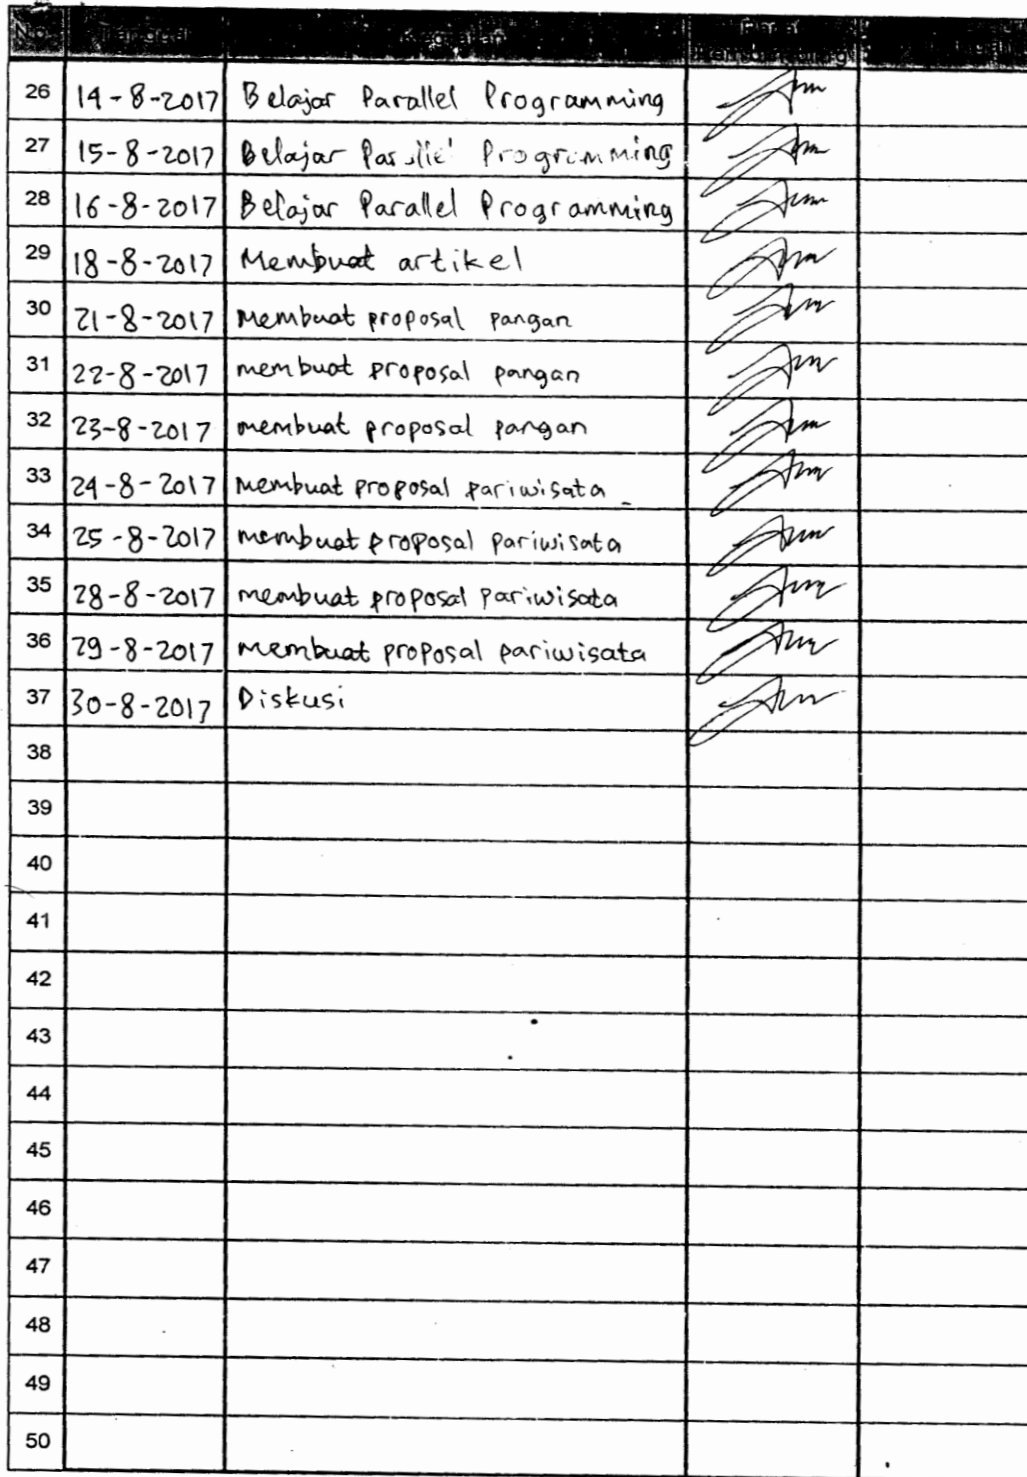 No Tanggal Kegiatan Paraf
26 14-8-2017 Belajar Parallel Programming
27 15-8-2017 Belajar Programming
28 16-8-2017 Belajar Parallel Programming
29 18-8-2017 Membuat artikel
30 21-8-2017 membuat proposal pangan
31 22-8-2017 membuat proposal pangan
32 23-8-2017 membuat proposal pangan
33 24-8-2017 membuat proposal pariwisata
34 25-8-2017 membuat proposal pariwisata
35 28-8-2017 membuat proposal pariwisata
36 29-8-2017 membuat proposal pariwisata
37 30-8-2017 Diskusi
38
39
40
41
42
43
44
45
46
47
48
49
50